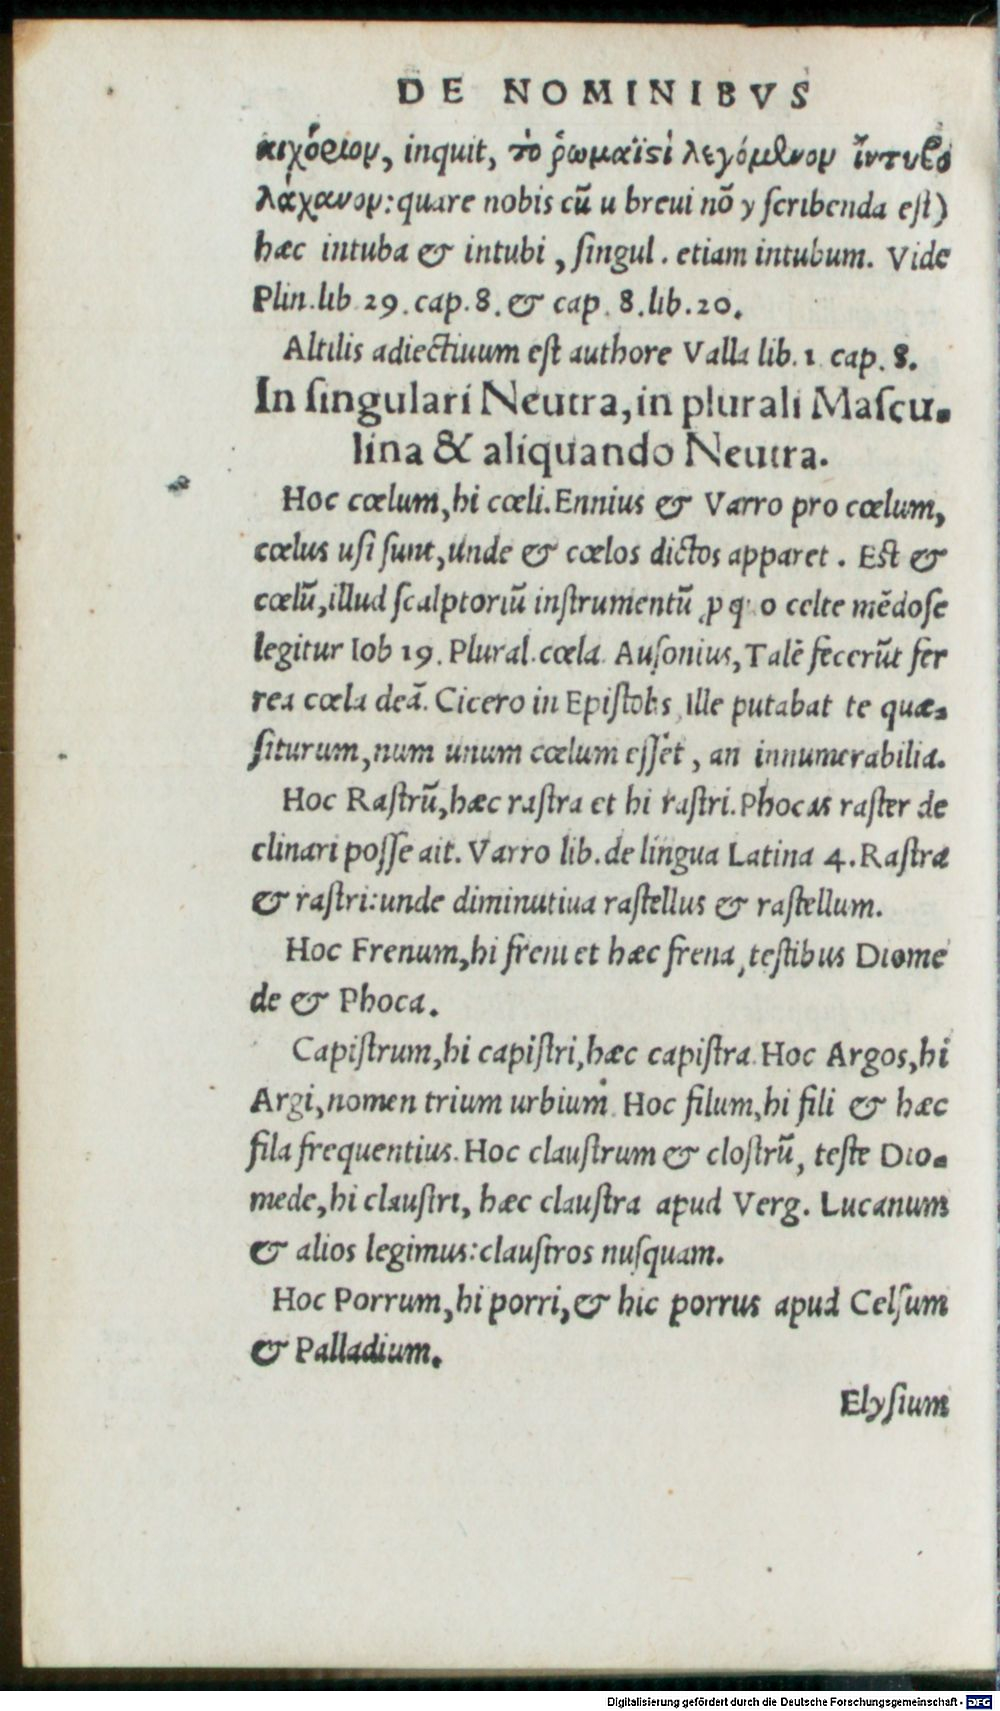 DE NOMINIBVS
κιχόριον, inquit, τὸ ῥωμαϊςὶ λεγόμενον ἴντυβο
λάχανον: quare nobis cū u breui nō y scribenda est)
hæc intuba & intubi, singul. etiam intubum. Vide
Plin. lib 29. cap. 8. & cap. 8. lib. 20.
Altilis adiectiuum est authore Valla lib. 1 cap. 8.
In singulari Neutra, in plurali Mascu-
lina & aliquando Neutra.
Hoc cœlum, hi cœli. Ennius & Varro pro cœlum,
cœlus usi sunt, unde & cœlos dictos apparet. Est &
cœlū, illud scalptoriū instrumentū, p q o celte mēdose
legitur Iob 19. Plural. cœla. Ausonius, Talē fecerūt fer
rea cœla deā. Cicero in Epistolis, Ille putabat te quæ-
siturum, num unum cœlum esset, an innumerabilia.
Hoc Rastrū, hæc rastra et hi rastri. Phocas raster de
clinari posse ait. Varro lib. de lingua Latina 4. Rastra
& rastri: unde diminutiua rastellus & rastellum.
Hoc Frenum, hi freni et hæc frena, testibus Diome
de & Phoca.
Capistrum, hi capistri, hæc capistra. Hoc Argos, hi
Argi, nomen trium urbium. Hoc filum, hi fili & hæc
fila frequentius. Hoc claustrum & clostrū, teste Dio-
mede, hi claustri, hæc claustra apud Verg. Lucanum
& alios legimus: claustros nusquam.
Hoc Porrum, hi porri, & hic porrus apud Celsum
& Palladium.
Elysium
Digitalisierung gefördert durch die Deutsche Forschungsgemeinschaft - DFG